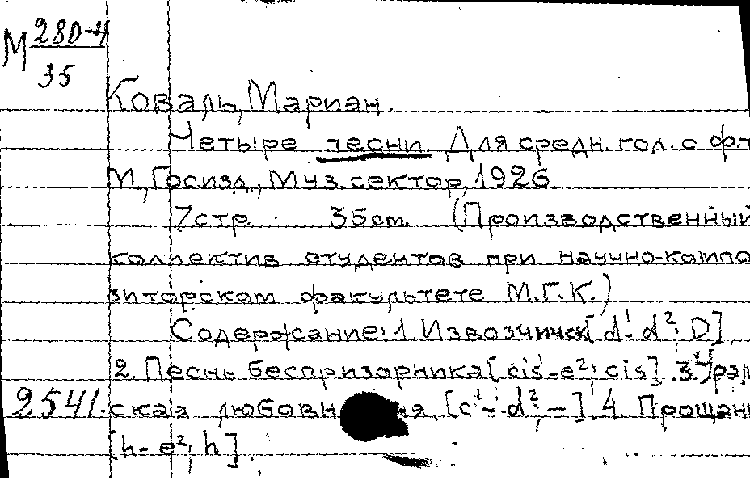 М 280-4
35
Коваль, Мариан.
Четыре песни. Для средн. гол. с ф-п
М., Госизд., Муз. сектор, 1926
7 стр. 35 cm. (Производственный
коллектив студентов при научно-компо-
зиторском факультете М.Г.К.)
Содержание: 1. Извозчичья [d¹-d²; D]
2. Песнь беспризорника [cis¹-e²; cis]. 3.
2541. ская любовн [c¹-d²; -] 4. Прощан
[h-e²; h].